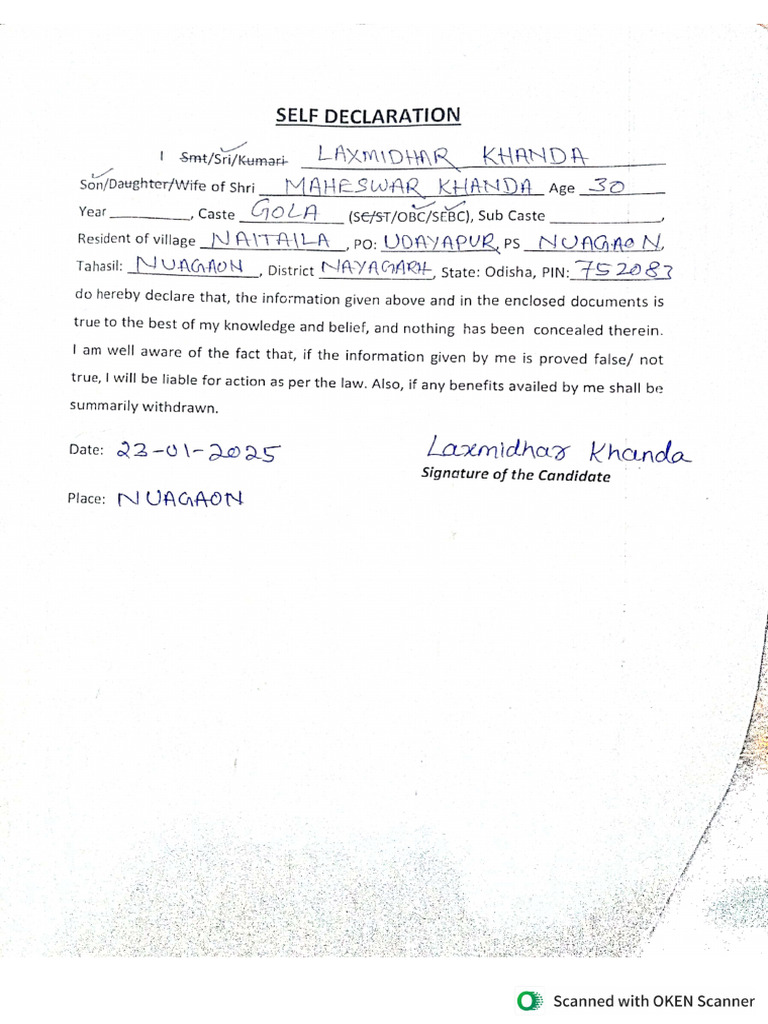 SELF DECLARATION
I Smt/Sri/Kumari LAXMIDHAR KHANDA
Son/Daughter/Wife of Shri MAHESWAR KHANDA Age 30
Year __________, Caste GOLA (SC/ST/OBC/SEBC), Sub Caste __________,
Resident of village NAITAILA, PO: UDAYAPUR, PS NUAGAON,
Tahasil: NUAGAON, District NAYAGARH, State: Odisha, PIN: 752083
do hereby declare that, the information given above and in the enclosed documents is
true to the best of my knowledge and belief, and nothing has been concealed therein.
I am well aware of the fact that, if the information given by me is proved false/ not
true, I will be liable for action as per the law. Also, if any benefits availed by me shall be
summarily withdrawn.
Date: 23-01-2025
Laxmidhar Khanda
Signature of the Candidate
Place: NUAGAON
Scanned with OKEN Scanner